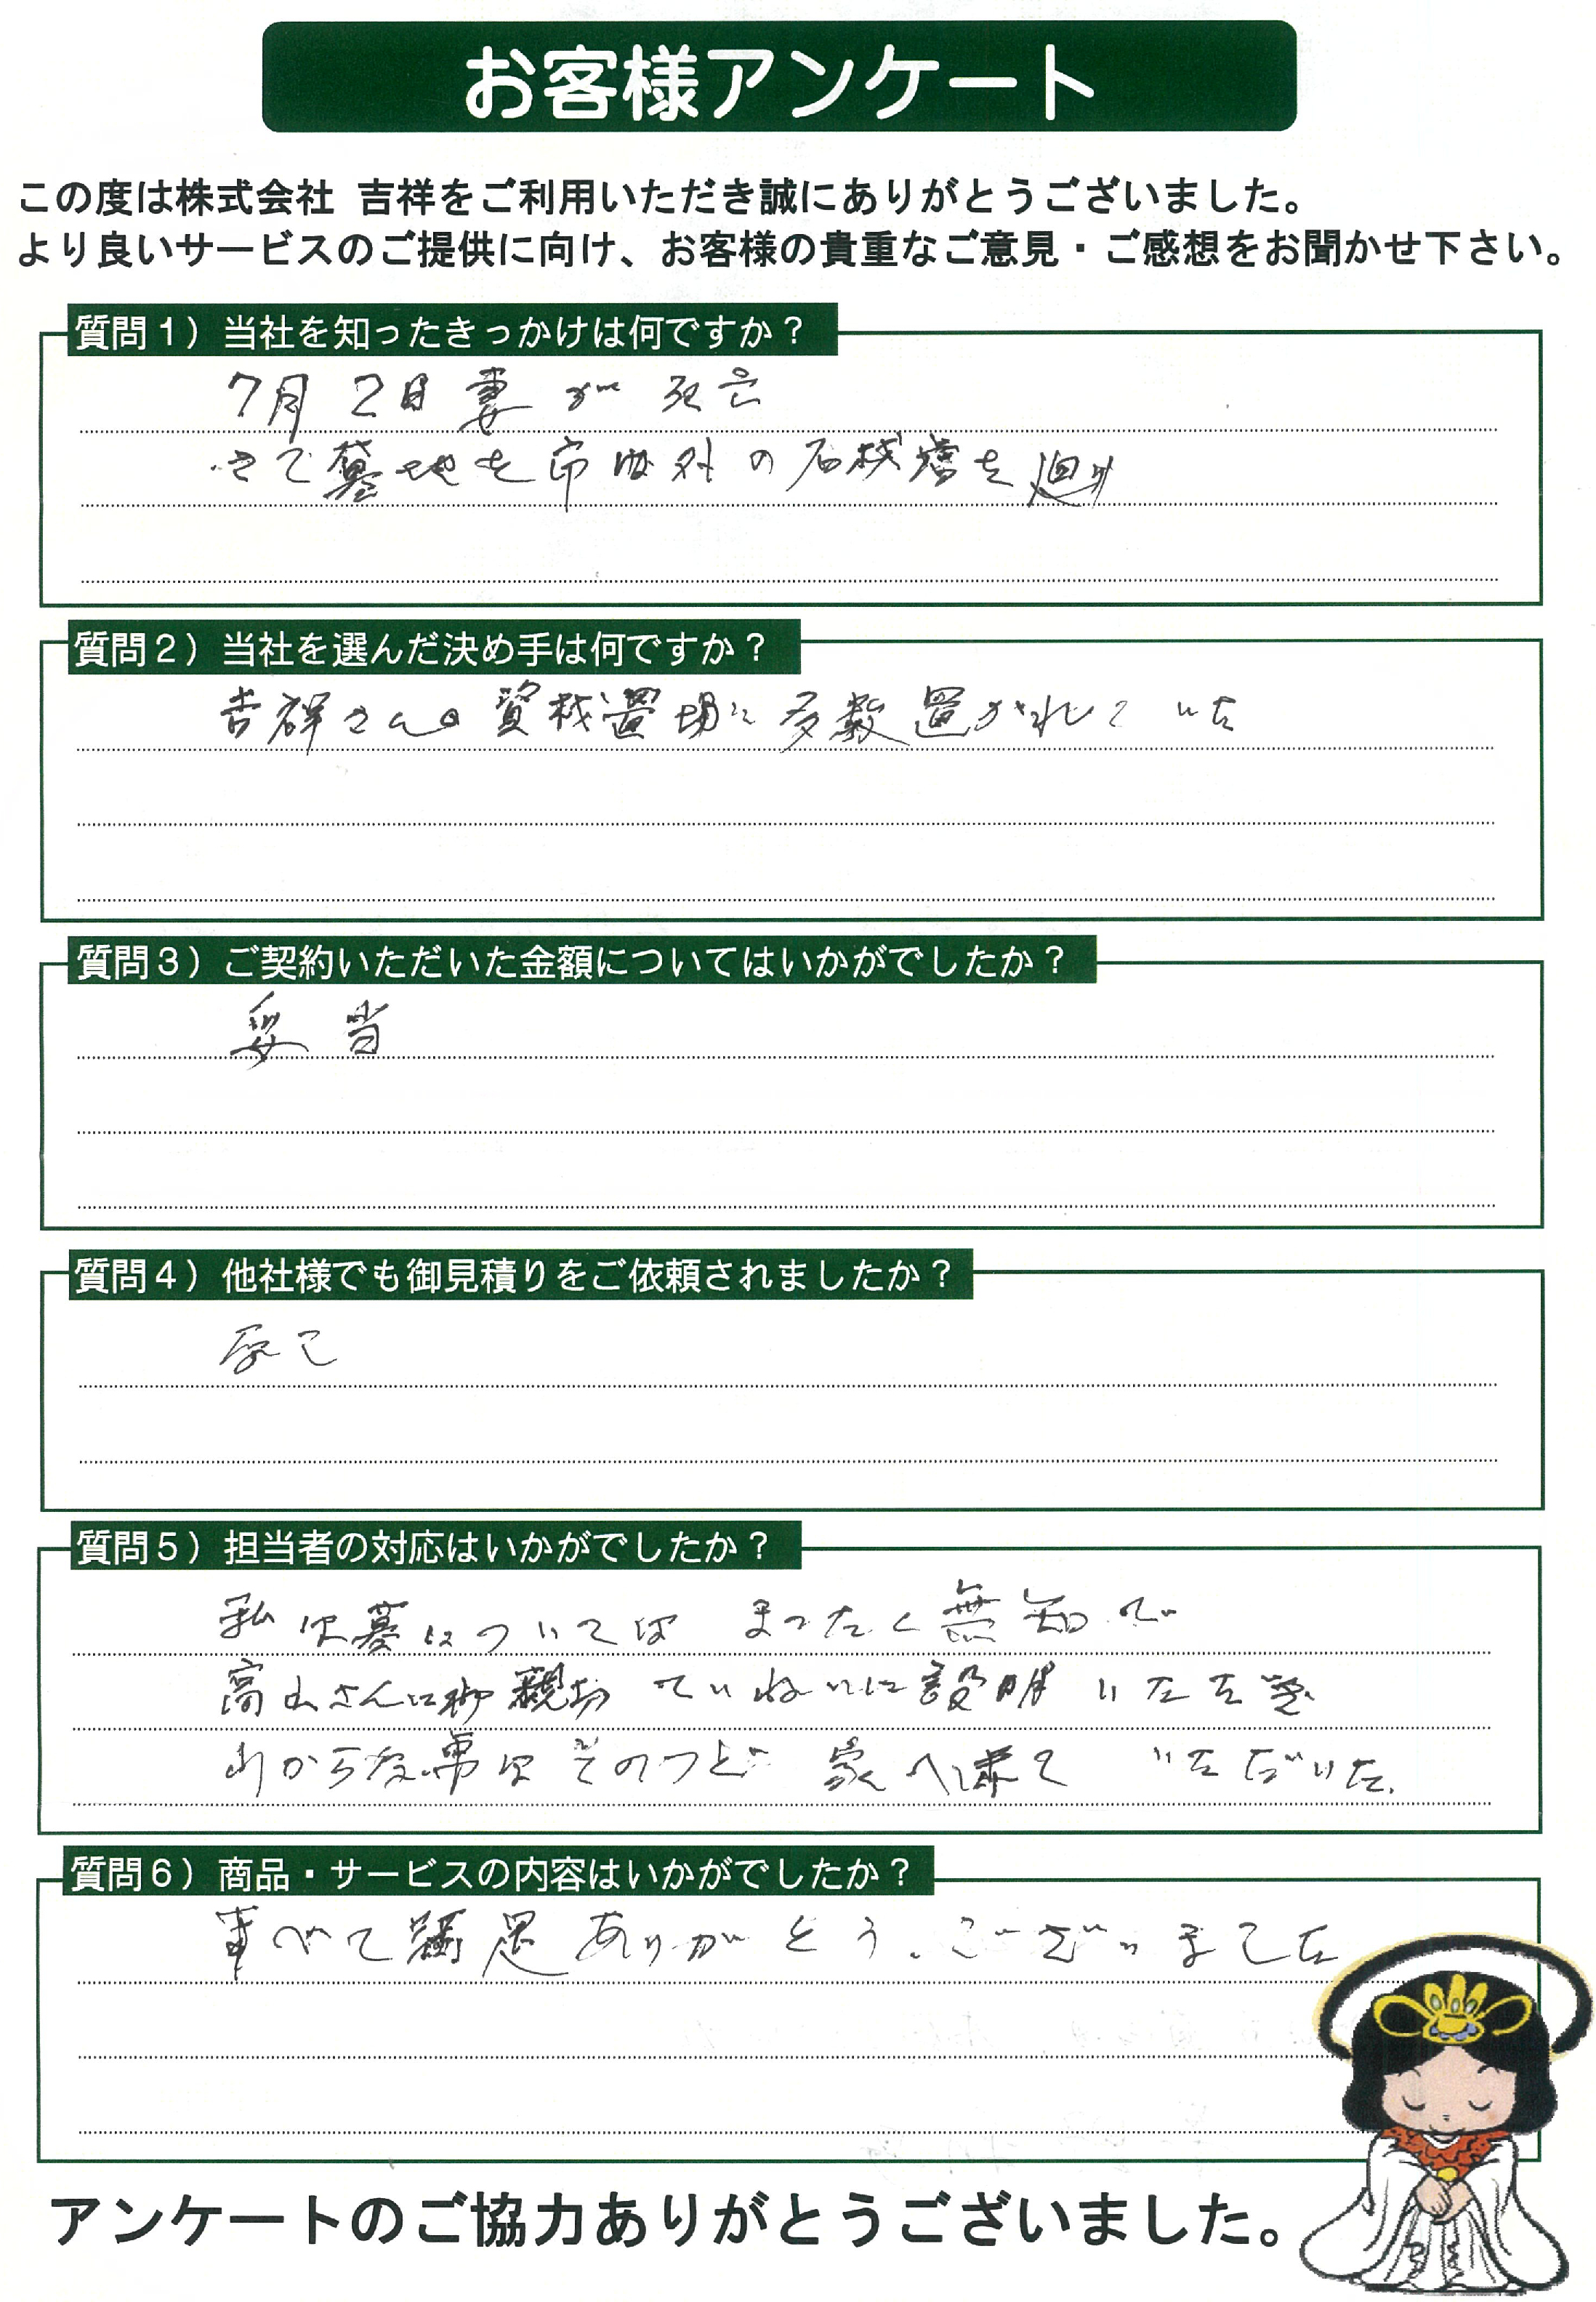 お客様アンケート
この度は株式会社 吉祥をご利用いただき誠にありがとうございました。
より良いサービスのご提供に向け、お客様の貴重なご意見・ご感想をお聞かせ下さい。
質問1）当社を知ったきっかけは何ですか？
7月2日妻が死亡
さて墓地を市内外の石材店を廻り
質問2）当社を選んだ決め手は何ですか？
吉祥さんの資材置場に多数置かれていた
質問3）ご契約いただいた金額についてはいかがでしたか？
妥当
質問4）他社様でも御見積りをご依頼されましたか？
質問5）担当者の対応はいかがでしたか？
私は墓については まったく無知で
高山さんに御親切 ていねいに説明いただき
わからな事はそのつど 家へ来て いただいた.
質問6）商品・サービスの内容はいかがでしたか？
すべて満足ありがとう、ございました
アンケートのご協力ありがとうございました。